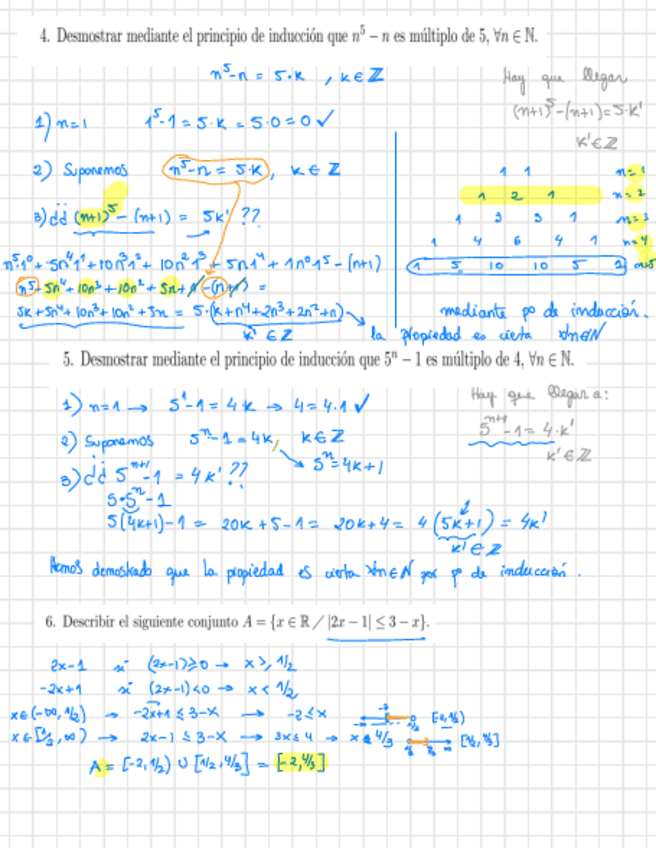 4. Desmostrar mediante el principio de inducción que n⁵ − n es múltiplo de 5, ∀n ∈ ℕ.
n⁵-n = 5·K , K∈ℤ
Hay que llegar
(n+1)⁵-(n+1)=5·K'
K'∈ℤ
1) n=1 1⁵-1 = 5·K = 5·0 = 0 ✓
2) Suponemos n⁵-n = 5·K, K∈ℤ
3) ¿¿ (n+1)⁵ - (n+1) = 5K' ??
1 1 n=1
1 2 1 n=2
1 3 3 1 n=3
1 4 6 4 1 n=4
1 5 10 10 5 1 n=5
n⁵1⁰ + 5n⁴1¹ + 10n³1² + 10n²1³ + 5n1⁴ + 1n⁰1⁵ - (n+1)
n⁵ + 5n⁴ + 10n³ + 10n² + 5n + 1 - (n+1) =
5K + 5n⁴ + 10n³ + 10n² + 5n = 5·(K+n⁴+2n³+2n²+n)
K' ∈ ℤ
mediante pº de inducción.
la propiedad es cierta ∀n∈N
5. Desmostrar mediante el principio de inducción que 5ⁿ − 1 es múltiplo de 4, ∀n ∈ ℕ.
1) n=1 → 5¹-1 = 4·K → 4 = 4·1 ✓
Hay que llegar a:
5ⁿ⁺¹-1 = 4·K'
K'∈ℤ
2) Suponemos 5ⁿ-1 = 4K, K∈ℤ
5ⁿ=4K+1
3) ¿¿ 5ⁿ⁺¹-1 = 4K' ??
5·5ⁿ-1
5(4K+1)-1 = 20K+5-1 = 20K+4 = 4(5K+1) = 4K'
K'∈ℤ
Hemos demostrado que la propiedad es cierta ∀n∈N por pº de inducción.
6. Describir el siguiente conjunto A = {x ∈ ℝ / |2x − 1| ≤ 3 − x}.
2x-1 si (2x-1)≥0 → x ≥ 1/2
-2x+1 si (2x-1)<0 → x < 1/2
x∈(-∞, 1/2) → -2x+1 ≤ 3-x → -2 ≤ x [-2, 1/2)
x∈[1/2, ∞) → 2x-1 ≤ 3-x → 3x ≤ 4 → x ≤ 4/3 [1/2, 4/3]
A = [-2, 1/2) ∪ [1/2, 4/3] = [-2, 4/3]